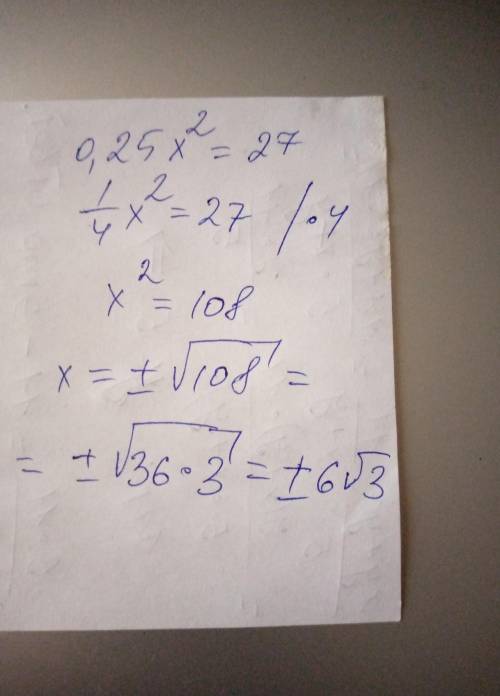 0,25x² = 27
1/4 x² = 27 / · 4
x² = 108
x = ± √108 =
= ± √36·3 = ± 6√3